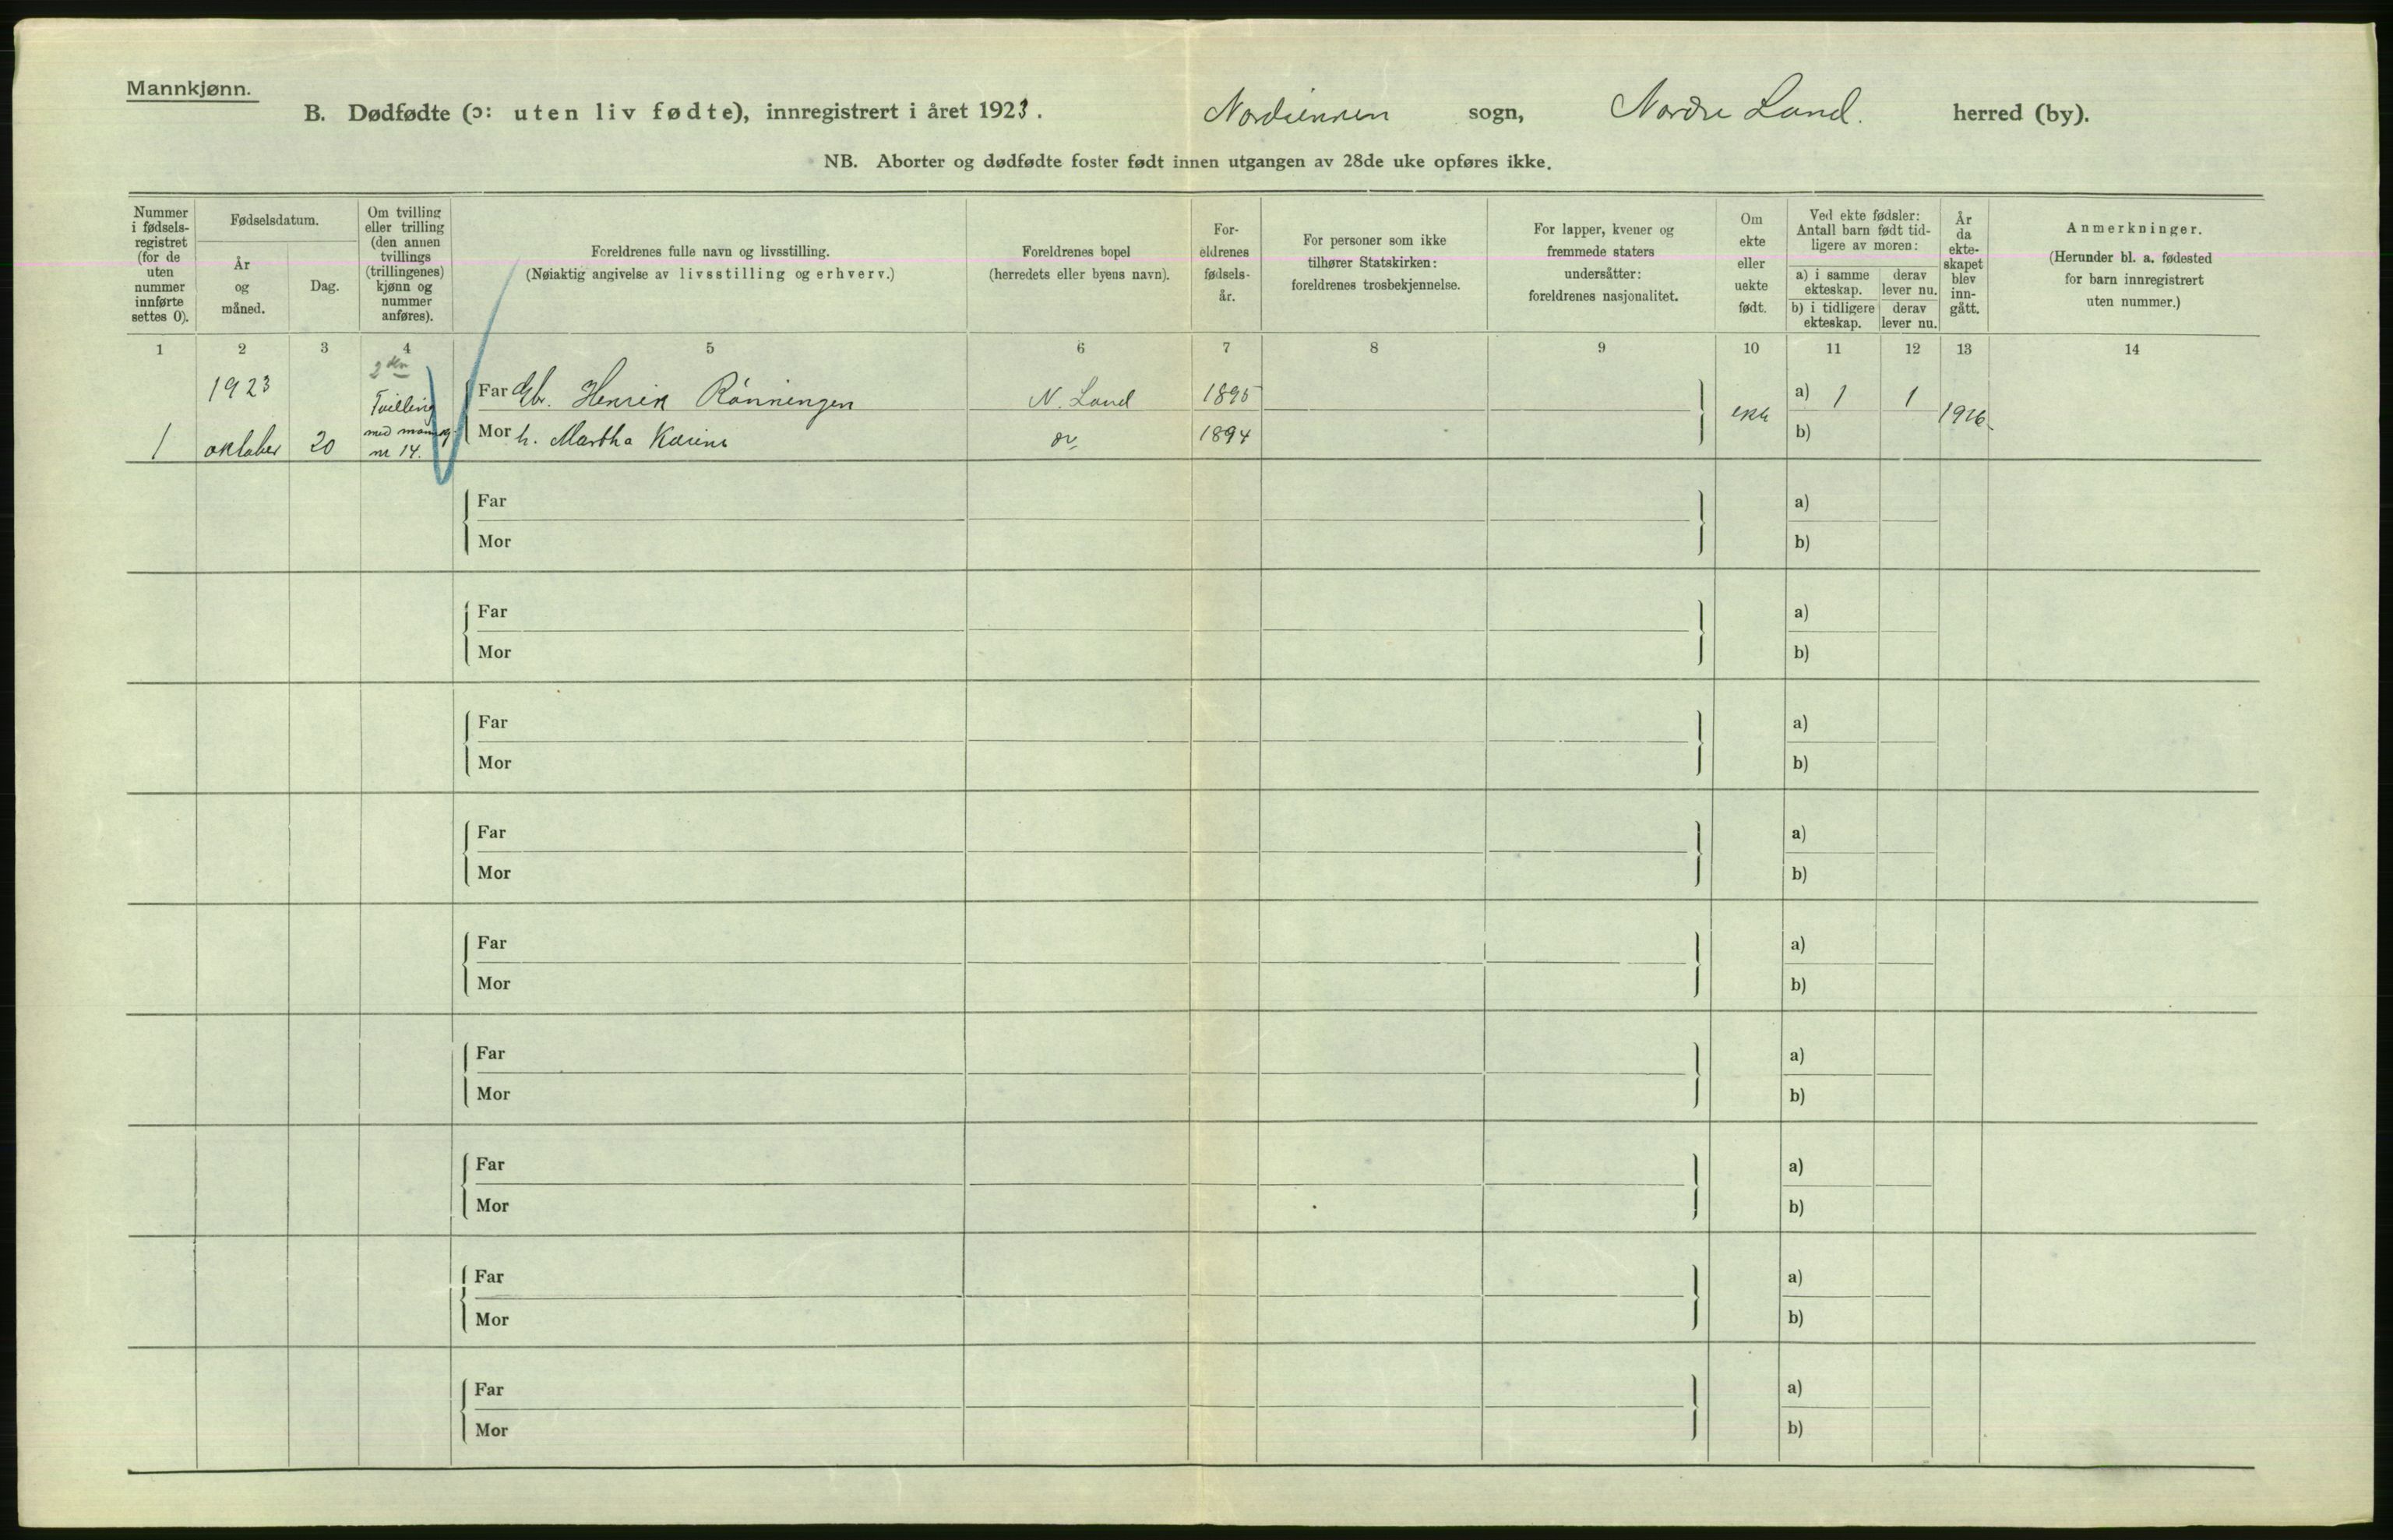 Mannkjønn.
B. Dødfødte (ɔ: uten liv fødte), innregistrert i året 1923. Nordsinnen sogn, Nordre Land. herred (by).
NB. Aborter og dødfødte foster født innen utgangen av 28de uke opføres ikke.
Nummer i fødsels-registret (for de uten nummer innførte settes 0).
Fødselsdatum.
År og måned.
Dag.
Om tvilling eller trilling (den annen tvillings (trillingenes) kjønn og nummer anføres).
Foreldrenes fulle navn og livsstilling.
(Nøiaktig angivelse av livsstilling og erhverv.)
Foreldrenes bopel
(herredets eller byens navn).
For-eldrenes fødsels-år.
For personer som ikke tilhører Statskirken: foreldrenes trosbekjennelse.
For lapper, kvener og fremmede staters undersåtter: foreldrenes nasjonalitet.
Om ekte eller uekte født.
Ved ekte fødsler: Antall barn født tid-ligere av moren:
a) i samme ekteskap.
derav lever nu.
b) i tidligere ekteskap.
derav lever nu.
År da ekte-skapet blev inn-gått.
Anmerkninger.
(Herunder bl. a. fødested for barn innregistrert uten nummer.)
1 2 3 4 5 6 7 8 9 10 11 12 13 14
1923 2den
Tvilling Far Gbr. Henrik Rønningen N. Land 1895 a) 1 1
ekte 1916
1 oktober 20 med mannkj. nr 14. Mor h. Martha Karine do 1894 b)
Far a)
Mor b)
Far a)
Mor b)
Far a)
Mor b)
Far a)
Mor b)
Far a)
Mor b)
Far a)
Mor b)
Far a)
Mor b)
Far a)
Mor b)
Far a)
Mor b)